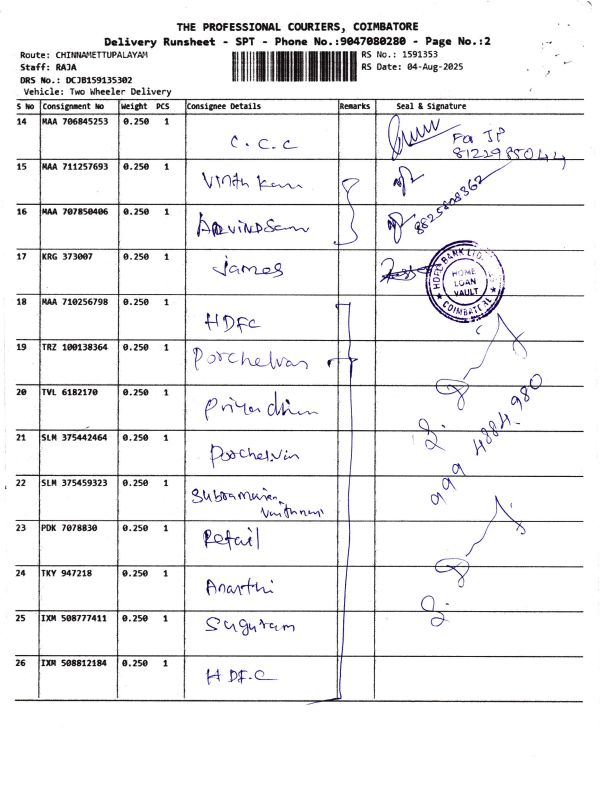 THE PROFESSIONAL COURIERS, COIMBATORE
Delivery Runsheet - SPT - Phone No.:9047080280 - Page No.:2
Route: CHINNAMETTUPALAYAM RS No.: 1591353
Staff: RAJA RS Date: 04-Aug-2025
DRS No.: DCJB159135302
Vehicle: Two Wheeler Delivery
S No Consignment No Weight PCS Consignee Details Remarks Seal & Signature
14 MAA 706845253 0.250 1 C.C.C For IP
8122985044
15 MAA 711257693 0.250 1
16 MAA 707850406 0.250 1 ARVINDSam
17 KRG 373007 0.250 1 James
HDFC BANK LTD.
HOME LOAN VAULT
18 MAA 710256798 0.250 1 HDFC
19 TRZ 100138364 0.250 1 Porchelvan
20 TVL 6182170 0.250 1 Priyadhan
21 SLM 375442464 0.250 1 Porchelvan
999 4884 980
22 SLM 375459323 0.250 1 Subramanian
23 PDK 7078830 0.250 1 Retail
24 TKY 947218 0.250 1 Ananthi
25 IXM 508777411 0.250 1 Suguram
26 IXM 508812184 0.250 1 HDF.C